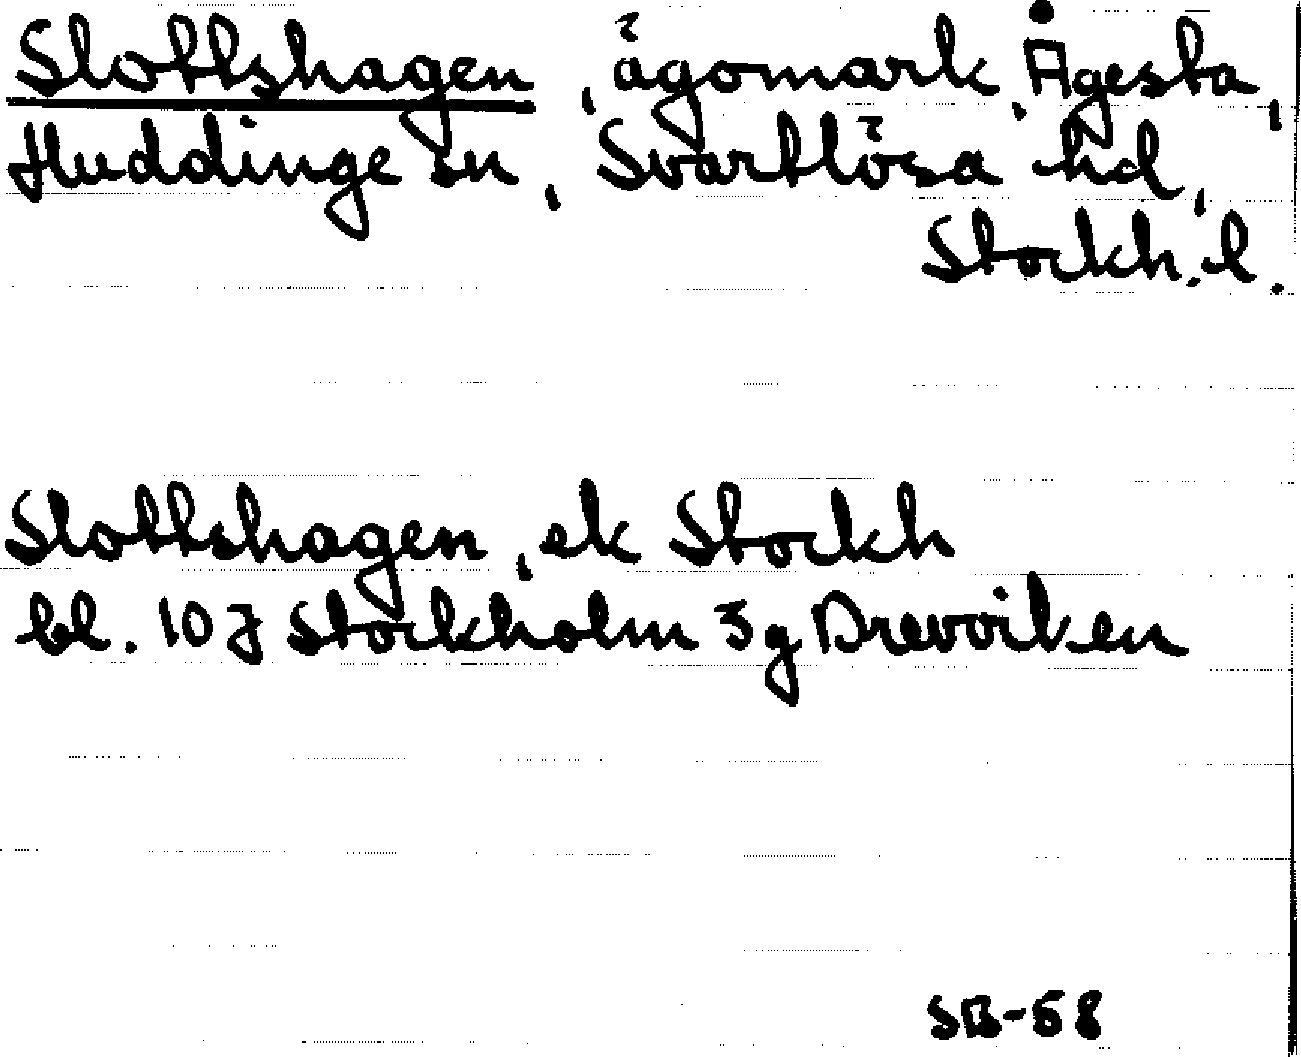 Slottshagen, ägomark, Ågesta,
Huddinge sn, Svartlösa hd,
Stockh. l.
Slottshagen, ek Stockh
bl. 10 J Stockholm 3 g Drevviken
SB-68